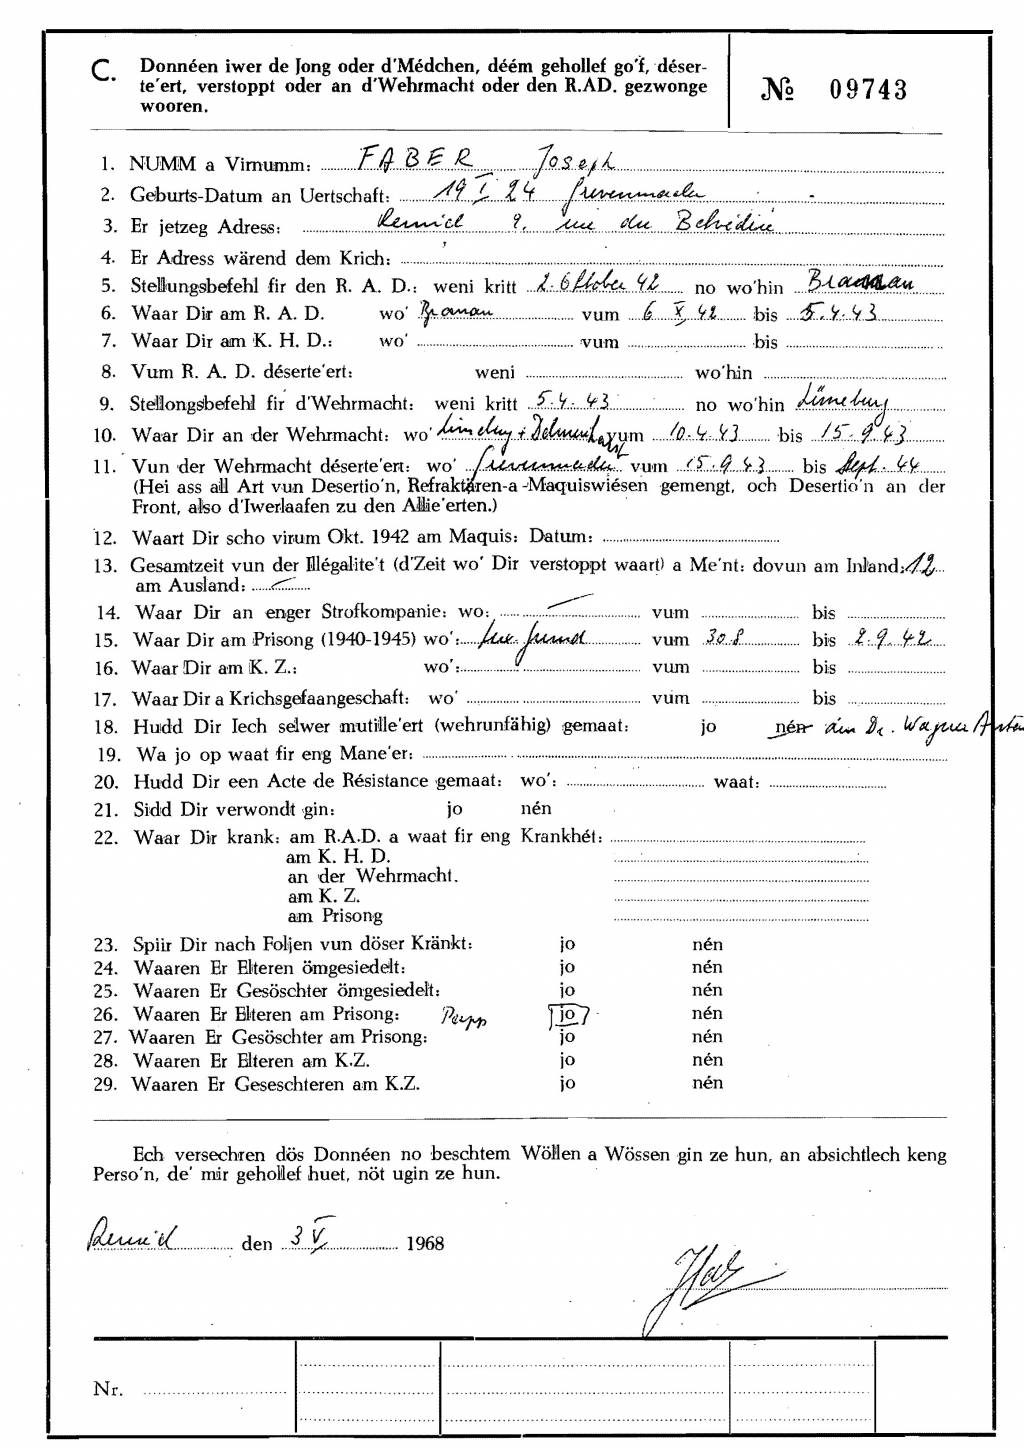 C. Donnéen iwer de Jong oder d'Médchen, déém gehollef go'f, déser-
te'ert, verstoppt oder an d'Wehrmacht oder den R.AD. gezwonge
wooren.
№ 09743
1. NUMM a Virnumm: FABER Joseph
2. Geburts-Datum an Uertschaft: 19 I 24 Grevenmacher
3. Er jetzeg Adress: Remich 9, rue du Belvédère
4. Er Adress wärend dem Krich:
5. Stellungsbefehl fir den R. A. D.: weni kritt 2. Oktober 42 no wo'hin Braunau
6. Waar Dir am R. A. D. wo' Branau vum 6 X 42 bis 5.4.43
7. Waar Dir am K. H. D.: wo' vum bis
8. Vum R. A. D. déserte'ert: weni wo'hin
9. Stellongsbefehl fir d'Wehrmacht: weni kritt 5.4.43 no wo'hin Lüneburg
10. Waar Dir an der Wehrmacht: wo' Lüneburg + Delmenhorst vum 10.4.43 bis 15.9.43
11. Vun der Wehrmacht déserte'ert: wo' Grevenmacher vum 15.9.43 bis Sept. 44
(Hei ass all Art vun Desertio'n, Refraktären-a-Maquiswiésen gemengt, och Desertio'n an der
Front, also d'Iwerlaafen zu den Allie'erten.)
12. Waart Dir scho virum Okt. 1942 am Maquis: Datum:
13. Gesamtzeit vun der Illégalite't (d'Zeit wo' Dir verstoppt waart) a Me'nt: dovun am Inland: 12
am Ausland: —
14. Waar Dir an enger Strofkompanie: wo: — vum bis
15. Waar Dir am Prisong (1940-1945) wo': Lux. Grund vum 30.8 bis 2.9.42
16. Waar Dir am K. Z.: wo': vum bis
17. Waar Dir a Krichsgefaangeschaft: wo' vum bis
18. Hudd Dir Iech selwer mutille'ert (wehrunfähig) gemaat: jo nén Dr. Wagner
19. Wa jo op waat fir eng Mane'er:
20. Hudd Dir een Acte de Résistance gemaat: wo': waat:
21. Sidd Dir verwondt gin: jo nén
22. Waar Dir krank: am R.A.D. a waat fir eng Krankhét:
am K. H. D.
an der Wehrmacht.
am K. Z.
am Prisong
23. Spiir Dir nach Foljen vun döser Kränkt: jo nén
24. Waaren Er Elteren ömgesiedelt: jo nén
25. Waaren Er Gesöschter ömgesiedelt: jo nén
26. Waaren Er Elteren am Prisong: Papp jo nén
27. Waaren Er Gesöschter am Prisong: jo nén
28. Waaren Er Elteren am K.Z. jo nén
29. Waaren Er Geseschteren am K.Z. jo nén
Ech versechren dös Donnéen no beschtem Wöllen a Wössen gin ze hun, an absichtlech keng
Perso'n, de' mir gehollef huet, nöt ugin ze hun.
Remich den 3 V 1968
Nr.